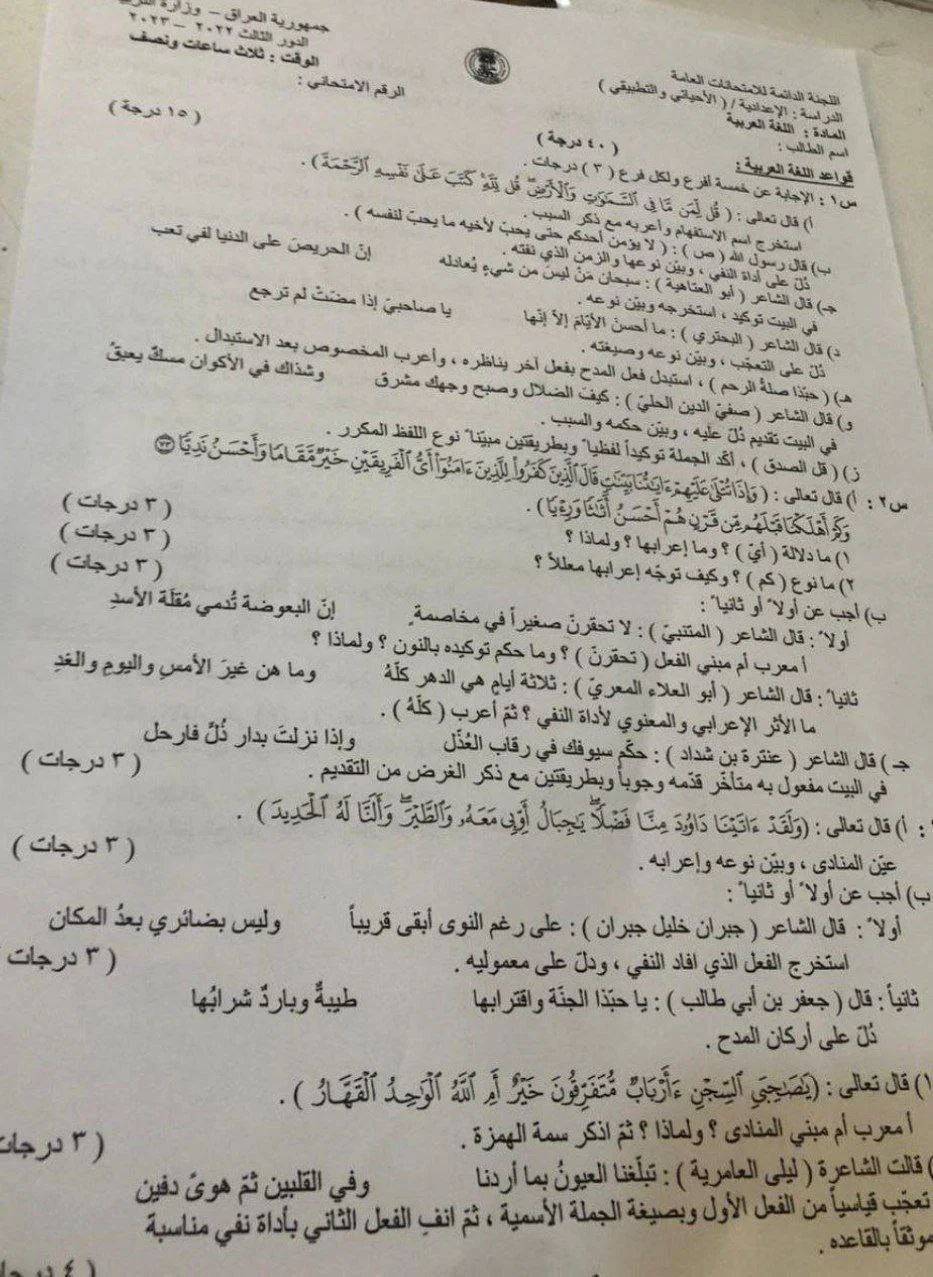 جمهورية العراق – وزارة
الدور الثالث ٢٠٢٢ – ٢٠٢٣
الوقت : ثلاث ساعات ونصف
الرقم الامتحاني :
اللجنة الدائمة للامتحانات العامة
الدراسة : الإعدادية / ( الأحيائي والتطبيقي )
المادة : اللغة العربية
اسم الطالب :
قواعد اللغة العربية : ( ٤٠ درجة )
س١ : الإجابة عن خمسة أفرع ولكل فرع ( ٣ ) درجات . ( ١٥ درجة )
أ) قال تعالى : ( قُل لِّمَن مَّا فِي ٱلسَّمَٰوَٰتِ وَٱلْأَرْضِۖ قُل لِّلَّهِۚ كَتَبَ عَلَىٰ نَفْسِهِ ٱلرَّحْمَةَ ) .
استخرج اسم الاستفهام وأعربه مع ذكر السبب .
ب) قال رسول الله ( ص ) : ( لا يؤمن أحدكم حتى يحبّ لأخيه ما يحبّ لنفسه ) .
دُلّ على أداة النفي ، وبيّن نوعها والزمن الذي نفته .
جـ) قال الشاعر ( أبو العتاهية ) : سبحان مَنْ ليسَ من شيءٍ يُعادله إنّ الحريصَ على الدنيا لفي تعب
في البيت توكيد ، استخرجه وبيّن نوعه .
د) قال الشاعر ( البحتري ) : ما أحسنَ الأيّامَ إلاّ إنّها يا صاحبيّ إذا مضَتْ لم ترجع
دُلّ على التعجّب ، وبيّن نوعه وصيغته .
هـ) ( حبّذا صلةُ الرحم ) ، استبدل فعل المدح بفعل آخر يناظره ، وأعرب المخصوص بعد الاستبدال .
و) قال الشاعر ( صفيّ الدين الحليّ ) : كيفَ الضلال وصبح وجهك مشرق وشذاك في الأكوان مسكٌ يعبقُ
في البيت تقديم دُلّ عليه ، وبيّن حكمه والسبب .
ز) ( قل الصدق ) ، أكّد الجملة توكيداً لفظياً وبطريقتين مبيّناً نوع اللفظ المكرر .
س٢ : أ) قال تعالى : ( وَإِذَا تُتْلَىٰ عَلَيْهِمْ ءَايَٰتُنَا بَيِّنَٰتٍ قَالَ ٱلَّذِينَ كَفَرُوا۟ لِلَّذِينَ ءَامَنُوٓا۟ أَىُّ ٱلْفَرِيقَيْنِ خَيْرٌ مَّقَامًا وَأَحْسَنُ نَدِيًّا ٧٣
وَكَمْ أَهْلَكْنَا قَبْلَهُم مِّن قَرْنٍ هُمْ أَحْسَنُ أَثَٰثًا وَرِءْيًا ) .
١) ما دلالة ( أيّ ) ؟ وما إعرابها ؟ ولماذا ؟ ( ٣ درجات )
٢) ما نوع ( كم ) ؟ وكيف توجّه إعرابها معللاً ؟ ( ٣ درجات )
ب) أجب عن أولاً أو ثانياً : ( ٣ درجات )
أولاً : قال الشاعر ( المتنبيّ ) : لا تحقرنّ صغيراً في مخاصمةٍ إنّ البعوضة تُدمي مُقلَة الأسدِ
أ معرب أم مبني الفعل ( تحقرنّ ) ؟ وما حكم توكيده بالنون ؟ ولماذا ؟
ثانياً : قال الشاعر ( أبو العلاء المعريّ ) : ثلاثة أيامٍ هي الدهر كلّهُ وما هن غيرَ الأمسِ واليومِ والغدِ
ما الأثر الإعرابي والمعنوي لأداة النفي ؟ ثمّ أعرب ( كلّهُ ) .
جـ) قال الشاعر ( عنترة بن شداد ) : حكّم سيوفك في رقاب العُذّل وإذا نزلتَ بدار ذُلٍّ فارحل
في البيت مفعول به متأخّر قدّمه وجوباً وبطريقتين مع ذكر الغرض من التقديم . ( ٣ درجات )
: أ) قال تعالى : ( وَلَقَدْ ءَاتَيْنَا دَاوُۥدَ مِنَّا فَضْلًاۖ يَٰجِبَالُ أَوِّبِى مَعَهُۥ وَٱلطَّيْرَۖ وَأَلَنَّا لَهُ ٱلْحَدِيدَ ) .
عيّن المنادى ، وبيّن نوعه وإعرابه . ( ٣ درجات )
ب) أجب عن أولاً أو ثانياً :
أولاً : قال الشاعر ( جبران خليل جبران ) : على رغم النوى أبقى قريباً وليس بضائري بعدُ المكان
استخرج الفعل الذي افاد النفي ، ودلّ على معموليه . ( ٣ درجات
ثانياً : قال ( جعفر بن أبي طالب ) : يا حبّذا الجنّة واقترابها طيبةٌ وباردٌ شرابُها
دُلّ على أركان المدح .
١) قال تعالى : ( يَٰصَٰحِبَىِ ٱلسِّجْنِ ءَأَرْبَابٌ مُّتَفَرِّقُونَ خَيْرٌ أَمِ ٱللَّهُ ٱلْوَٰحِدُ ٱلْقَهَّارُ ) .
أ معرب أم مبني المنادى ؟ ولماذا ؟ ثمّ اذكر سمة الهمزة . ( ٣ درجات
) قالت الشاعرة ( ليلى العامرية ) : تبلّغنا العيونُ بما أردنا وفي القلبين ثمّ هوىً دفين
تعجّب قياسياً من الفعل الأول وبصيغة الجملة الأسمية ، ثمّ انفِ الفعل الثاني بأداة نفي مناسبة
موثقاً بالقاعده .